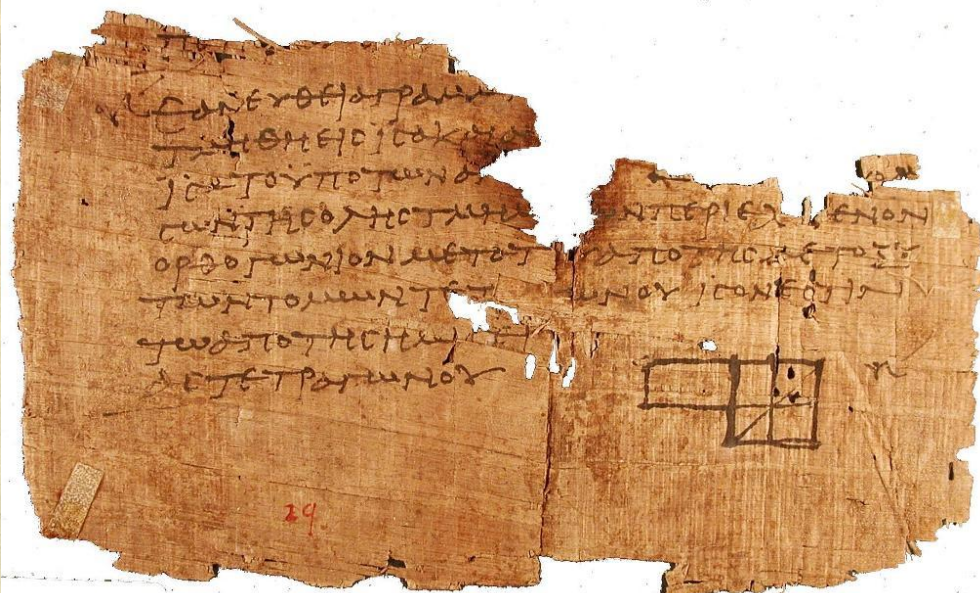 ΕΑΝΕΥΘΕΙΑΓΡΑΜΜ
ΤΜΗΘΗΕΙϹΙϹΑΚΑΙΑΝ
ΙϹΑΤΟΥΠΟΤΩΝΑ
ϹΩΝΤΗϹΟΛΗϹΤΜΗΜ ΩΝΠΕΡΙΕΧ ΜΕΝΟΝ
ΟΡΘΟΓΩΝΙΟΝΜΕΤΑΤ ΑΠΟΤΗϹΜΕΤΟΞΥ
ΤΩΝΤΟΜΩΝΤΕΤ ΩΝΟΥ ΙϹΟΝΕϹΤΙΝ
ΤΩΑΠΟΤΗϹΗΜΙ
ΑϹΤΕΤΡΑΓΩΝΟΥ
29